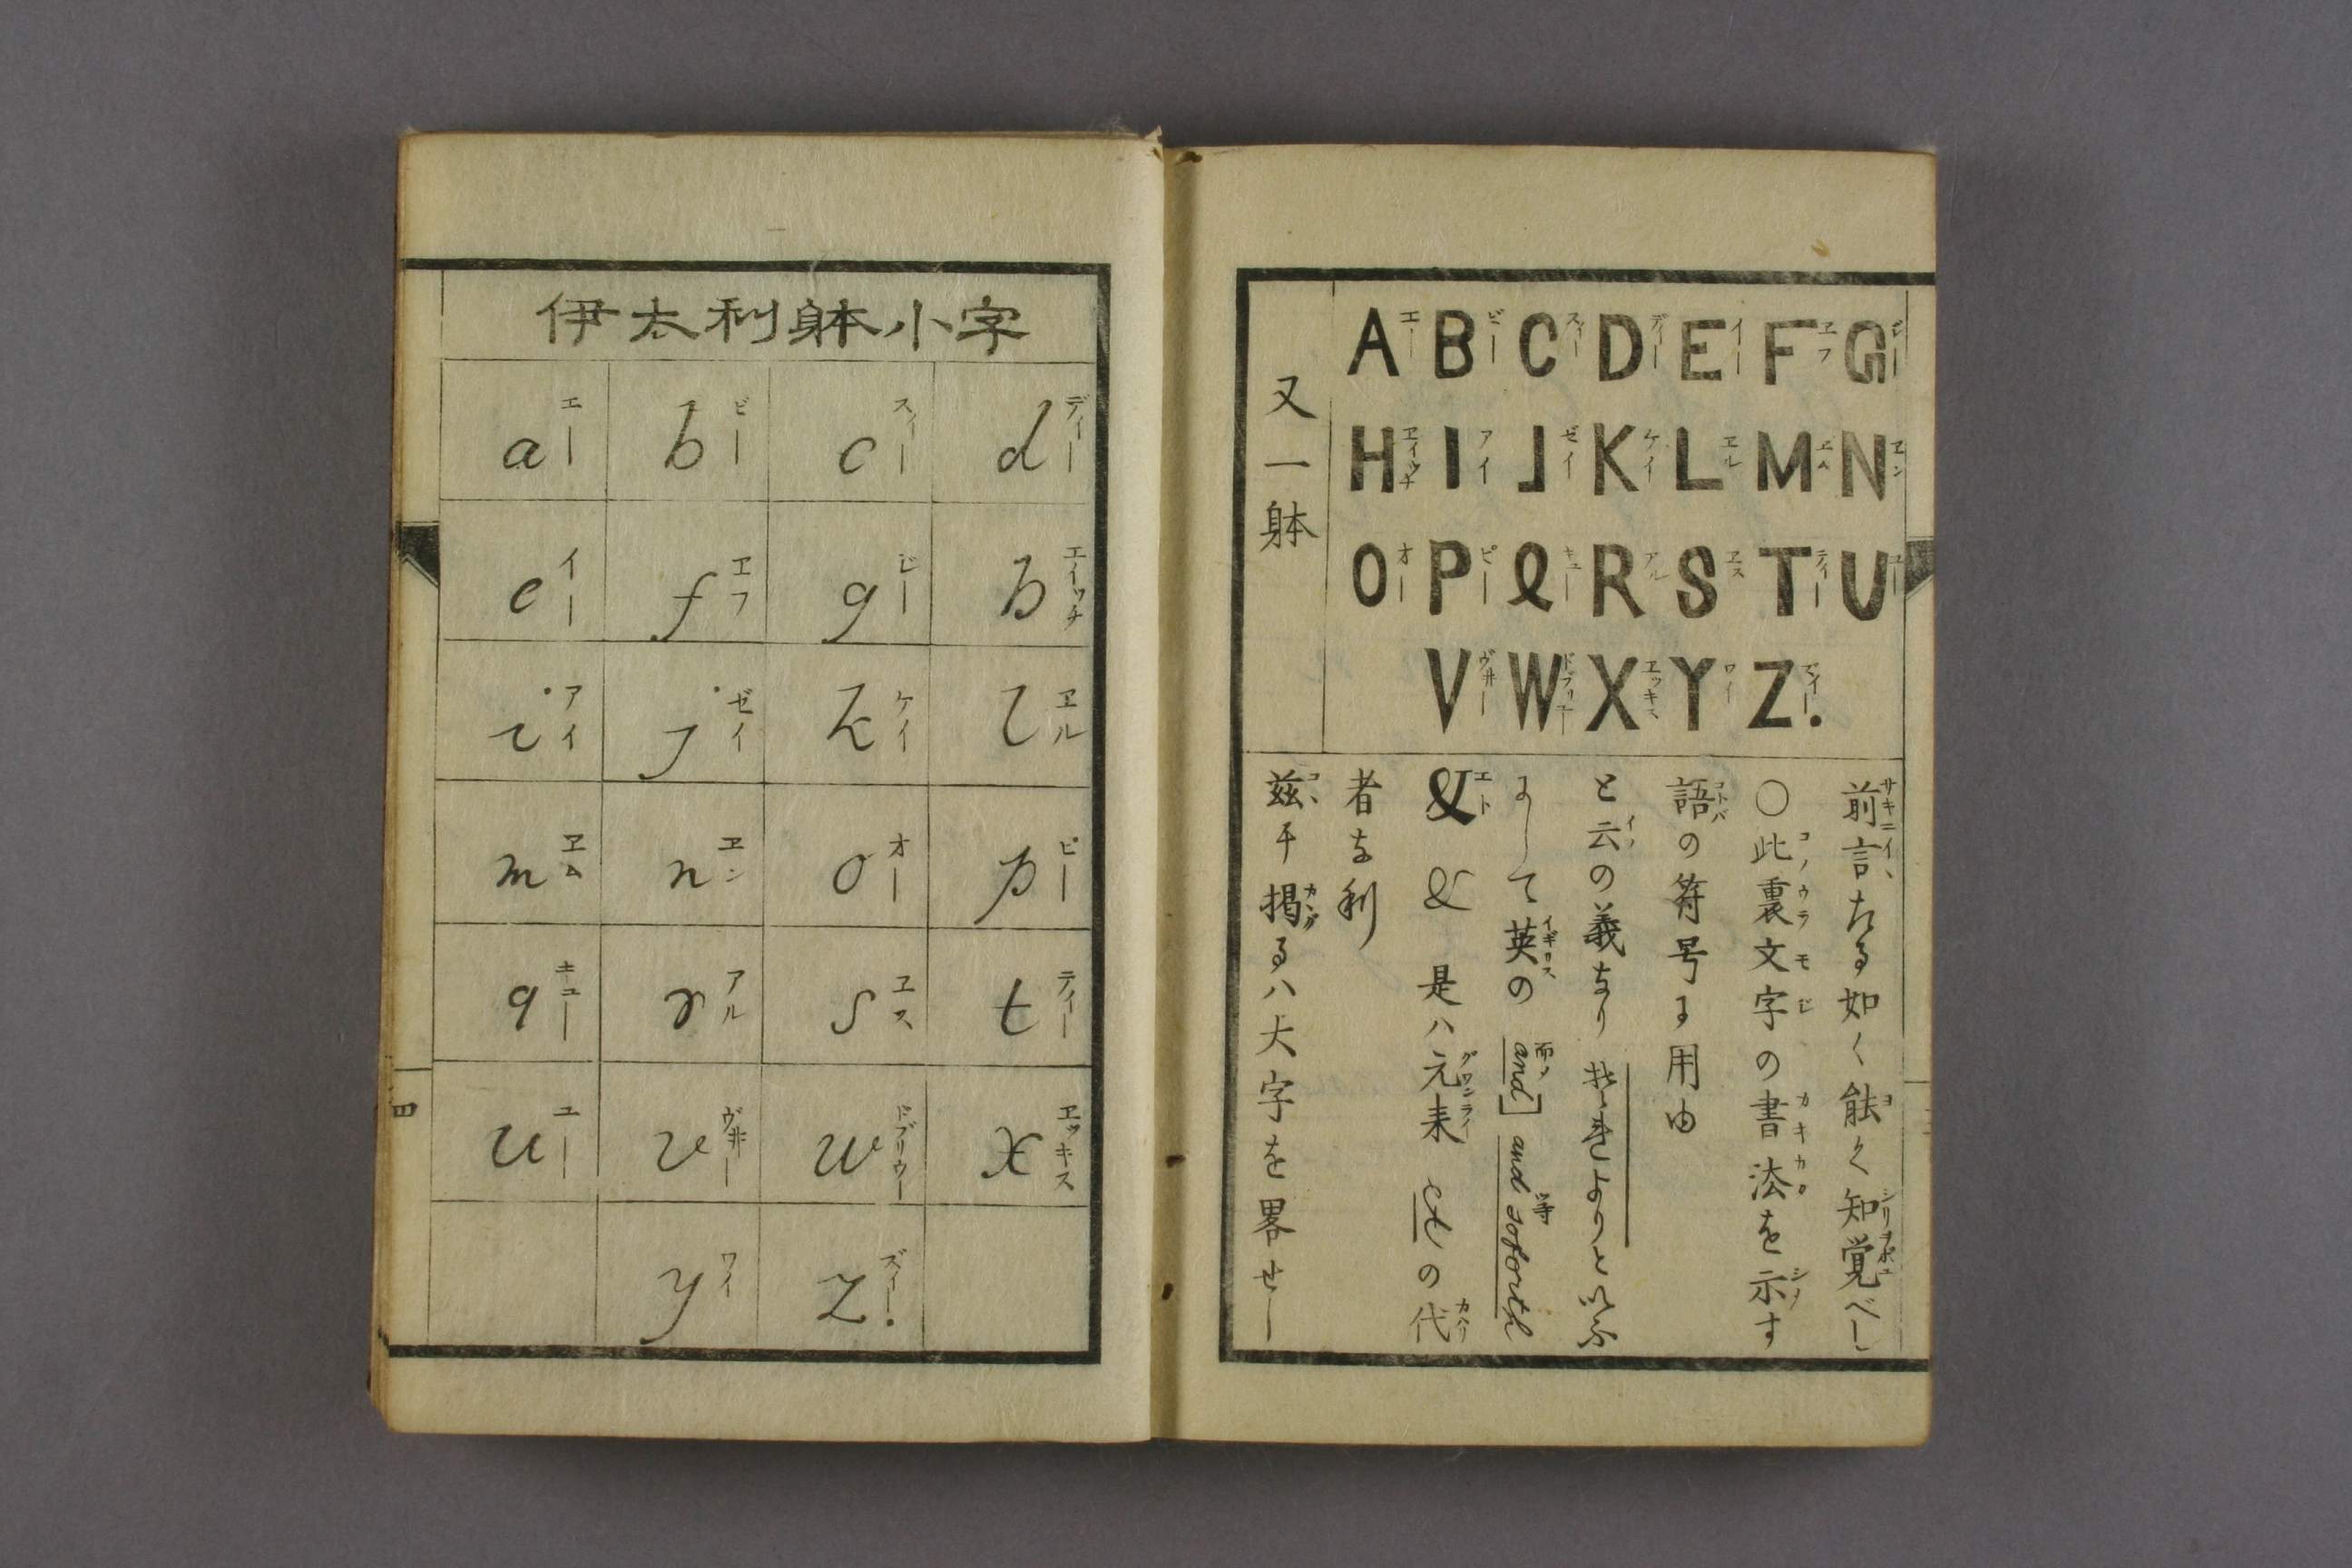 A B C D E F G
エー ビー スィー ディー イー ヱフ ジー
H I J K L M N
ヱイッチ アイ ゼイ ケイ ヱル ヱム ヱン
O P Q R S T U
オー ピー キュー アル ヱス ティー ユー
V W X Y Z.
ヴ井ー ドブリユー ヱッキス ワイ ズイー
又一躰
前言たる如く能く知覚べし
〇此裏文字の書法を示す
語の符号に用ゆ
と云の義なり 是
にして英の and] and soforth
& & 是ハ元来 et の代
者な利
茲乎掲るハ大字を畧せし
伊太利躰小字
a b c d
エー ビー スィー ディー
e f g h
イー ヱフ ジー エイッチ
i j k l
アイ ゼイ ケイ ヱル
m n o p
ヱム ヱン オー ピー
q r s t
キュー アル ヱス ティー
u v w x
ユー ヴ井ー ドブリウー ヱッキス
y z.
ワイ ズイー
四